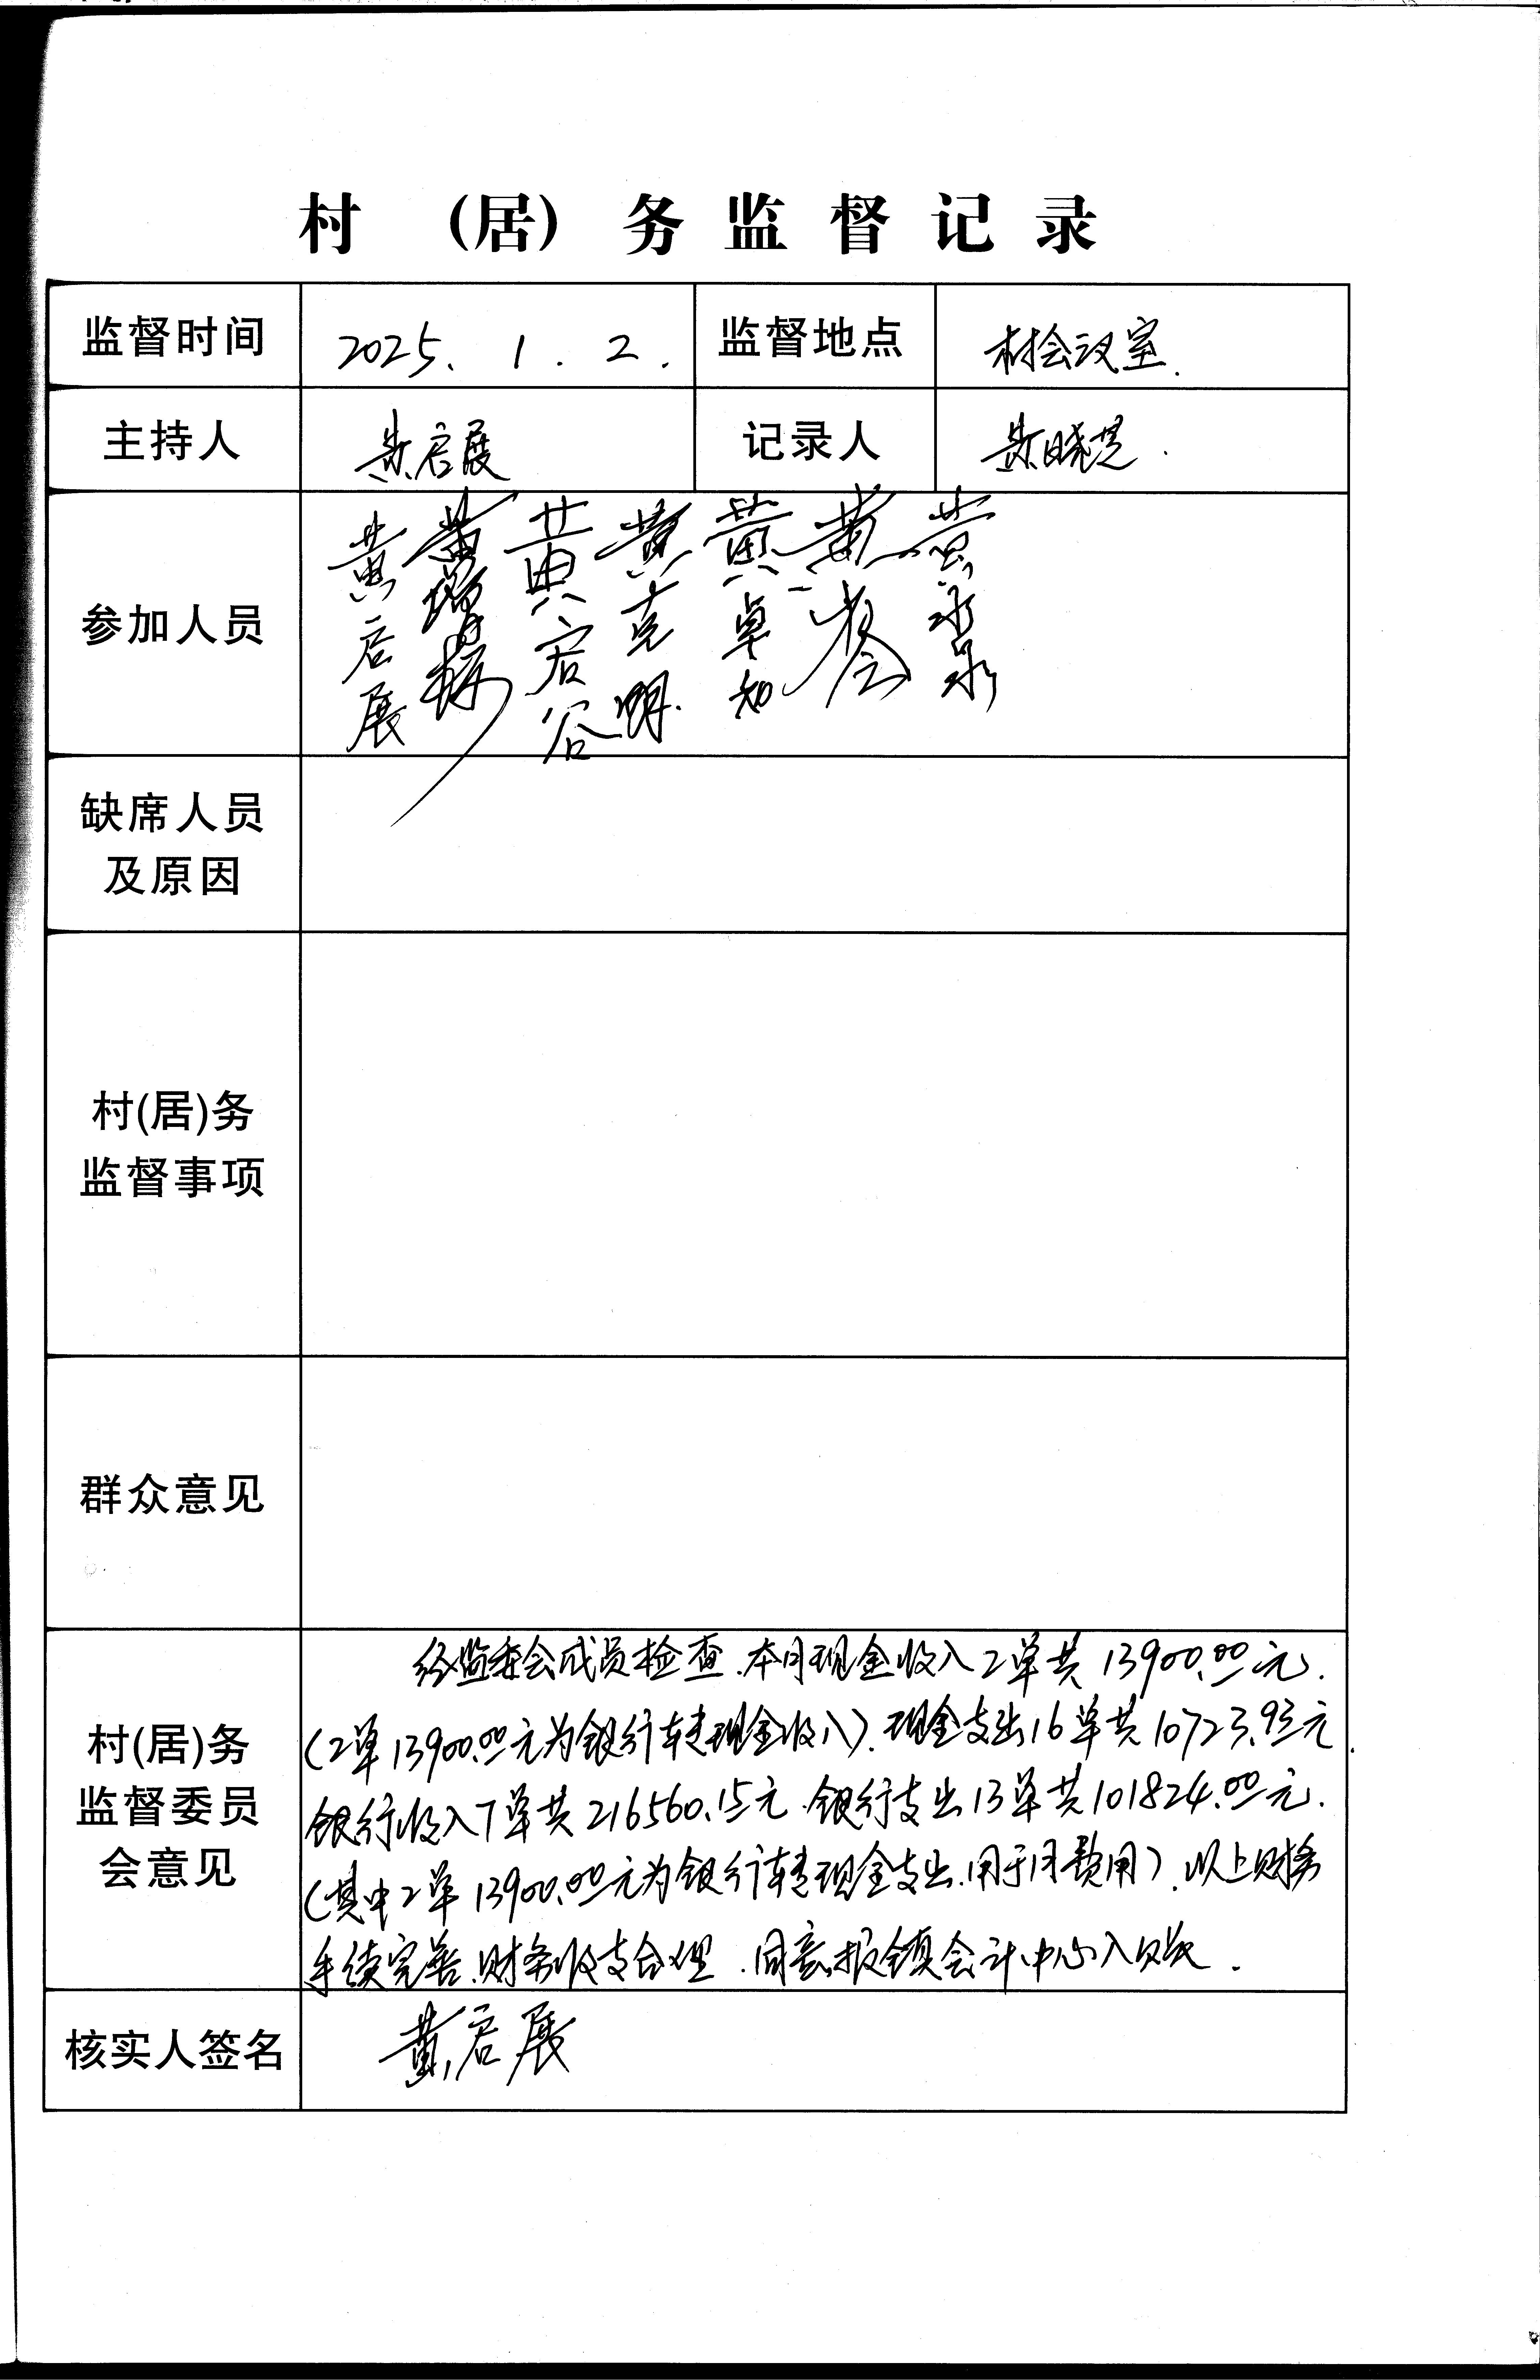 村 （居） 务 监 督 记 录
监督时间 2025. 1. 2. 监督地点 村会议室.
主持人 黄启展 记录人 黄晓
参加人员 黄启展 黄 黄宏谷 黄克明. 黄卓知 黄 黄水泉
缺席人员
及原因
村(居)务
监督事项
群众意见
村(居)务
监督委员
会意见
经监委会成员检查.本月现金收入2单共13900.00元.
(2单13900.00元为银行转现金收入).现金支出16单共10723.93元.
银行收入7单共216560.15元.银行支出13单共101824.00元.
(其中2单13900.00元为银行转现金支出.用于月费用).以上财务
手续完善.财务收支合理.同意报镇会计中心入账.
核实人签名 黄启展